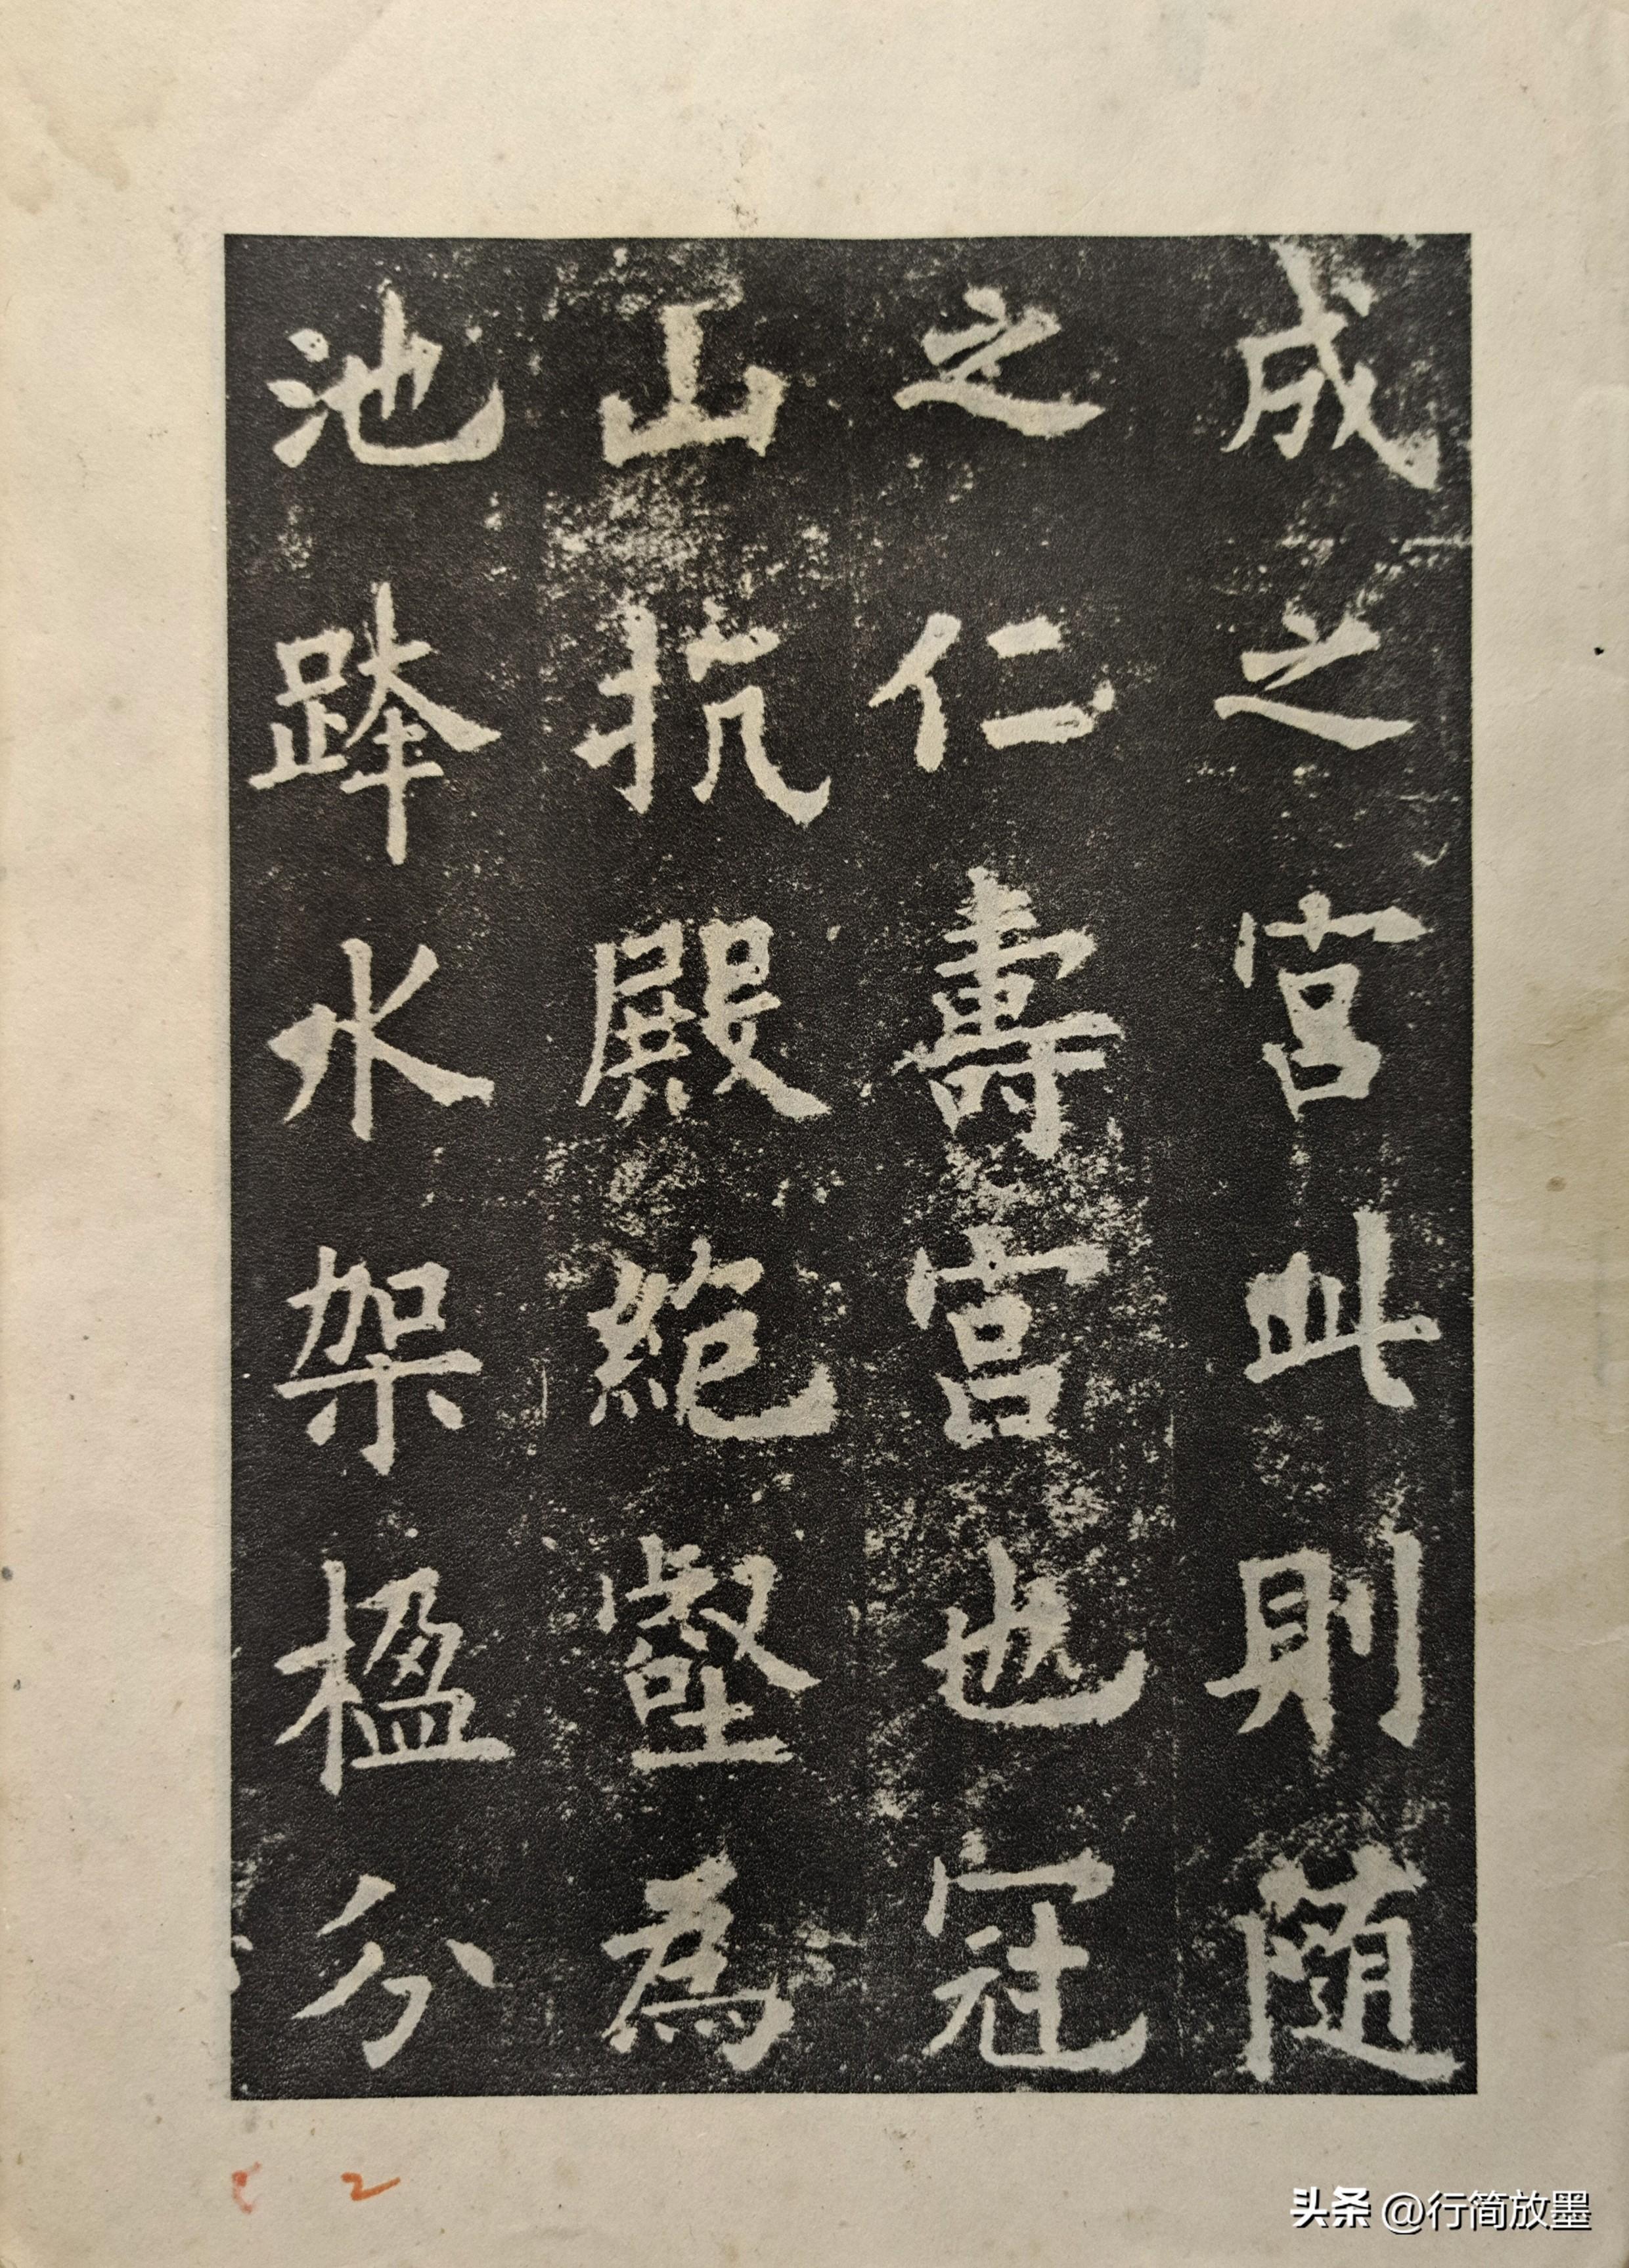 成之宫此則随
之仁壽宫也冠
山抗殿絶壑為
池跨水架楹分
2
头条 @行简放墨